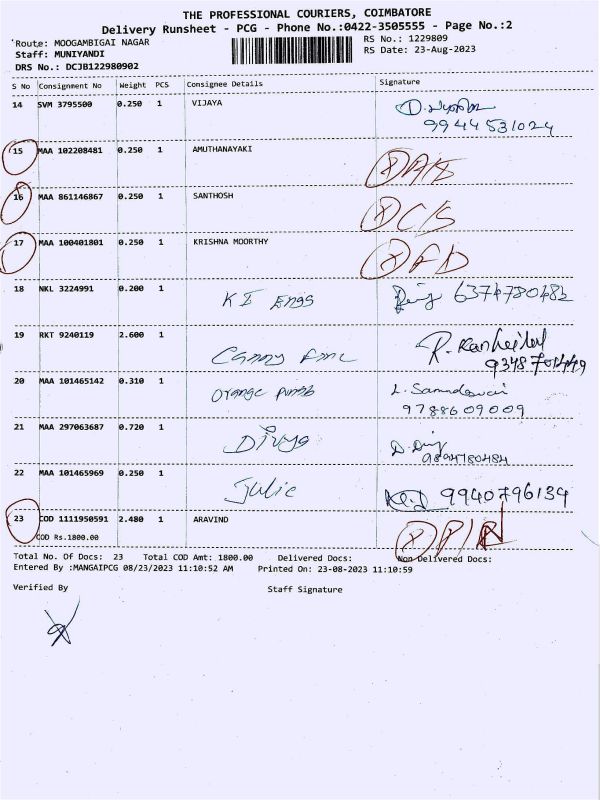 THE PROFESSIONAL COURIERS, COIMBATORE
Delivery Runsheet - PCG - Phone No.:0422-3505555 - Page No.:2
Route: MOOGAMBIGAI NAGAR RS No.: 1229809
Staff: MUNIYANDI RS Date: 23-Aug-2023
DRS No.: DCJB122980902
S No Consignment No Weight PCS Consignee Details Signature
14 SVM 3795500 0.250 1 VIJAYA
9944531024
15 MAA 102208481 0.250 1 AMUTHANAYAKI
16 MAA 861146867 0.250 1 SANTHOSH C/S
17 MAA 100401801 0.250 1 KRISHNA MOORTHY
18 NKL 3224991 0.200 1 KI Engs 6374780482
19 RKT 9240119 2.600 1
20 MAA 101465142 0.310 1 orange
9788609009
21 MAA 297063687 0.720 1 Divya
9894780484
22 MAA 101465969 0.250 1 Julie 9940796134
23 COD 1111950591 2.480 1 ARAVIND
COD Rs.1800.00
Total No. Of Docs: 23 Total COD Amt: 1800.00 Delivered Docs: Non Delivered Docs:
Entered By :MANGAIPCG 08/23/2023 11:10:52 AM Printed On: 23-08-2023 11:10:59
Verified By Staff Signature